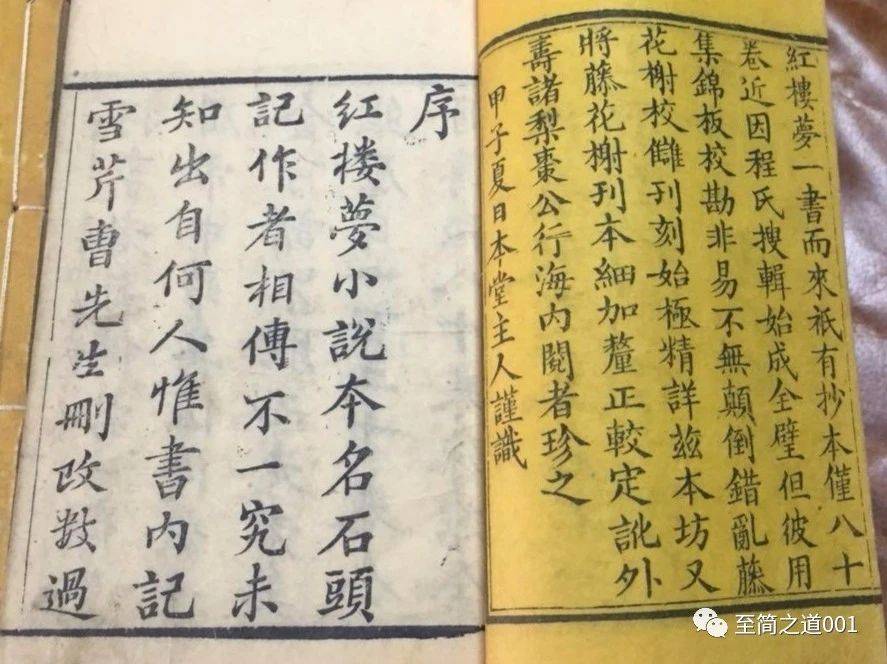 紅樓夢一書而來祇有抄本僅八十
卷近因程氏搜輯始成全璧但彼用
集錦板校勘非易不無顛倒錯亂藤
花榭校讎刊刻始極精詳茲本坊又
將藤花榭刊本細加釐正較定訛外
壽諸梨棗公行海內閱者珍之
甲子夏日本堂主人謹識
序
紅楼夢小說本名石頭
記作者相傳不一究未
知出自何人惟書內記
雪芹曹先生刪改数過
至简之道001